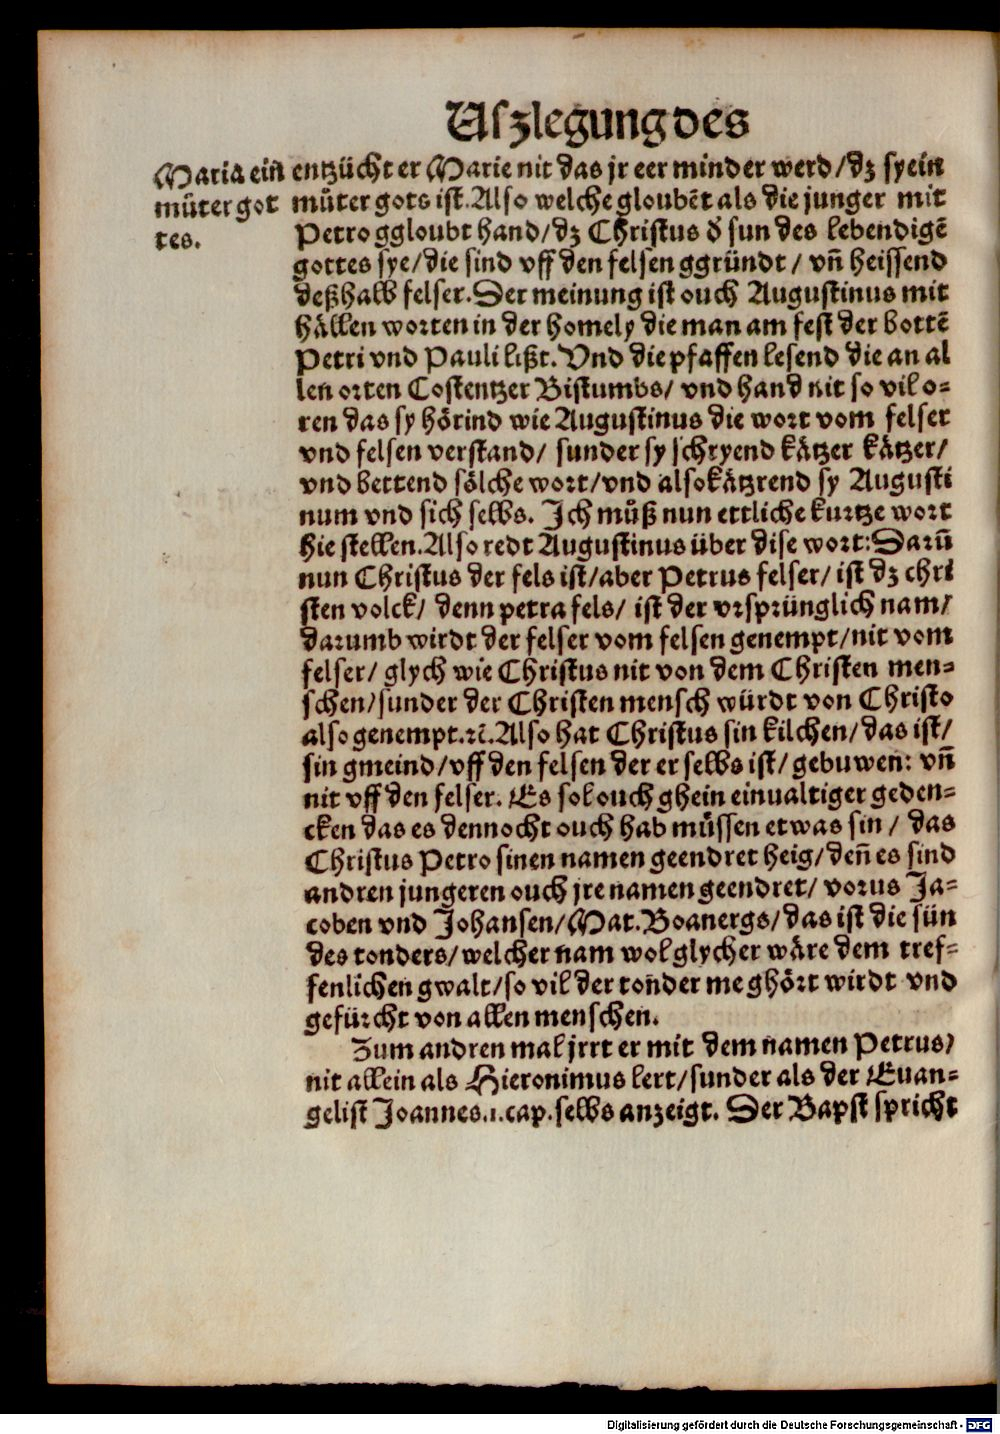 Uſzlegung des
Maria ein
můter got
tes.
entzücht er Marie nit das jr eer minder werd/dz sy ein
můter gots ist. Also welche gloubēt als die junger mit
Petro ggloubt hand/dz Christus d̕ sun des lebendigē
gottes sye/die sind vff den felsen ggründt/ vn̄ heissend
deßhalb felser. Der meinung ist ouch Augustinus mit
hällen worten in der homely die man am fest der bottē
Petri vnd Pauli lißt. Vnd die pfaffen lesend die an al
len orten Costentzer Bistumbs/ vnd hand nit so vil o-
ren das sy hörind wie Augustinus die wort vom felser
vnd felsen verstand/ sunder sy schryend kätzer kätzer/
vnd bettend sölche wort/vnd also kätzrend sy Augusti
num vnd sich selbs. Ich můß nun ettliche kurtze wort
hie stellen. Also redt Augustinus über dise wort: Darū
nun Christus der fels ist/aber Petrus felser/ ist dz chri
sten volck/ denn petra fels/ ist der vrsprünglich nam/
darumb wirdt der felser vom felsen genempt/nit vom
felser/ glych wie Christus nit von dem Christen men-
schen/sunder der Christen mensch würdt von Christo
also genempt.ꝛc̄. Also hat Christus sin kilchen/das ist/
sin gmeind/vff den felsen der er selbs ist/ gebuwen: vn̄
nit vff den felser. Es sol ouch ghein einualtiger geden-
cken das es dennocht ouch hab müssen etwas sin/ das
Christus Petro sinen namen geendret heig/den̄ es sind
andren jungeren ouch jre namen geendret/ vorus Ja-
coben vnd Johansen/Mat. Boanergs/das ist die sün
des tonders/welcher nam wol glycher wäre dem tref-
fenlichen gwalt/so vil der tonder me ghört wirdt vnd
gefürcht von allen menschen.
Zum andren mal jrrt er mit dem namen Petrus/
nit allein als Hieronimus lert/sunder als der Euan-
gelist Joannes.1.cap.selbs anzeigt. Der Bapst spricht
Digitalisierung gefördert durch die Deutsche Forschungsgemeinschaft - DFG